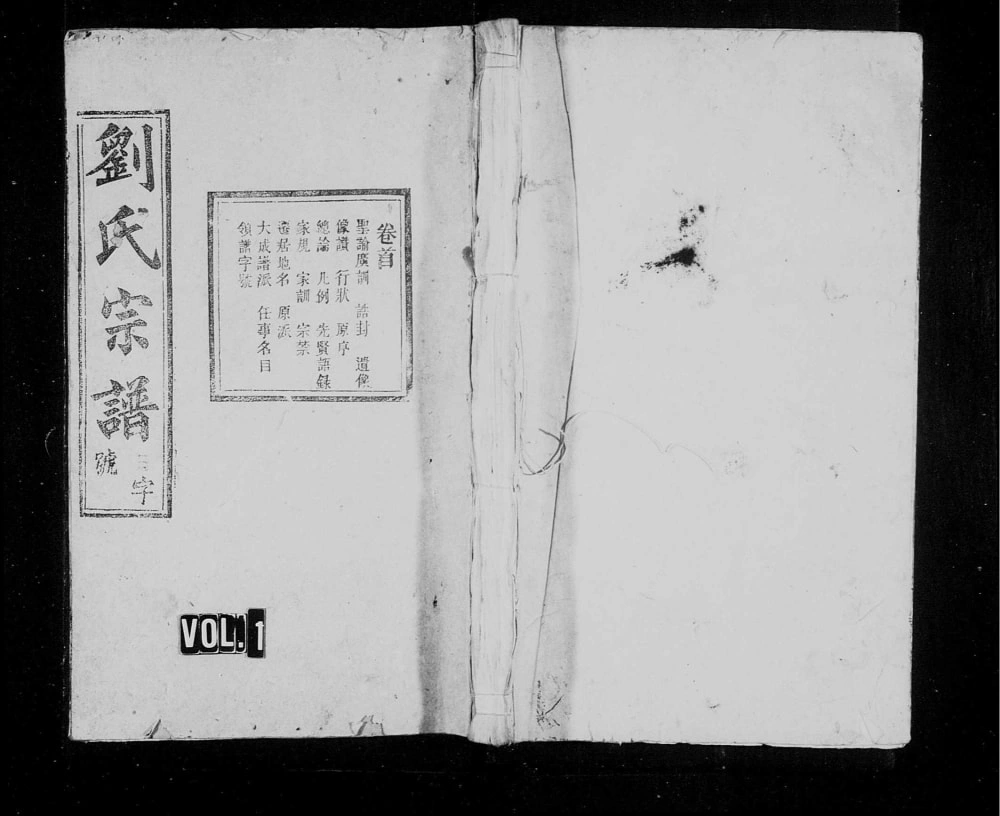 劉氏宗譜
字
號
卷首
聖諭廣訓 誥封 遺像
像讚 行狀 原序
總論 凡例 先賢語録
家規 家訓 宗禁
遷居地名 原派
大成譜派 任事名目
領譜字號
VOL. 1